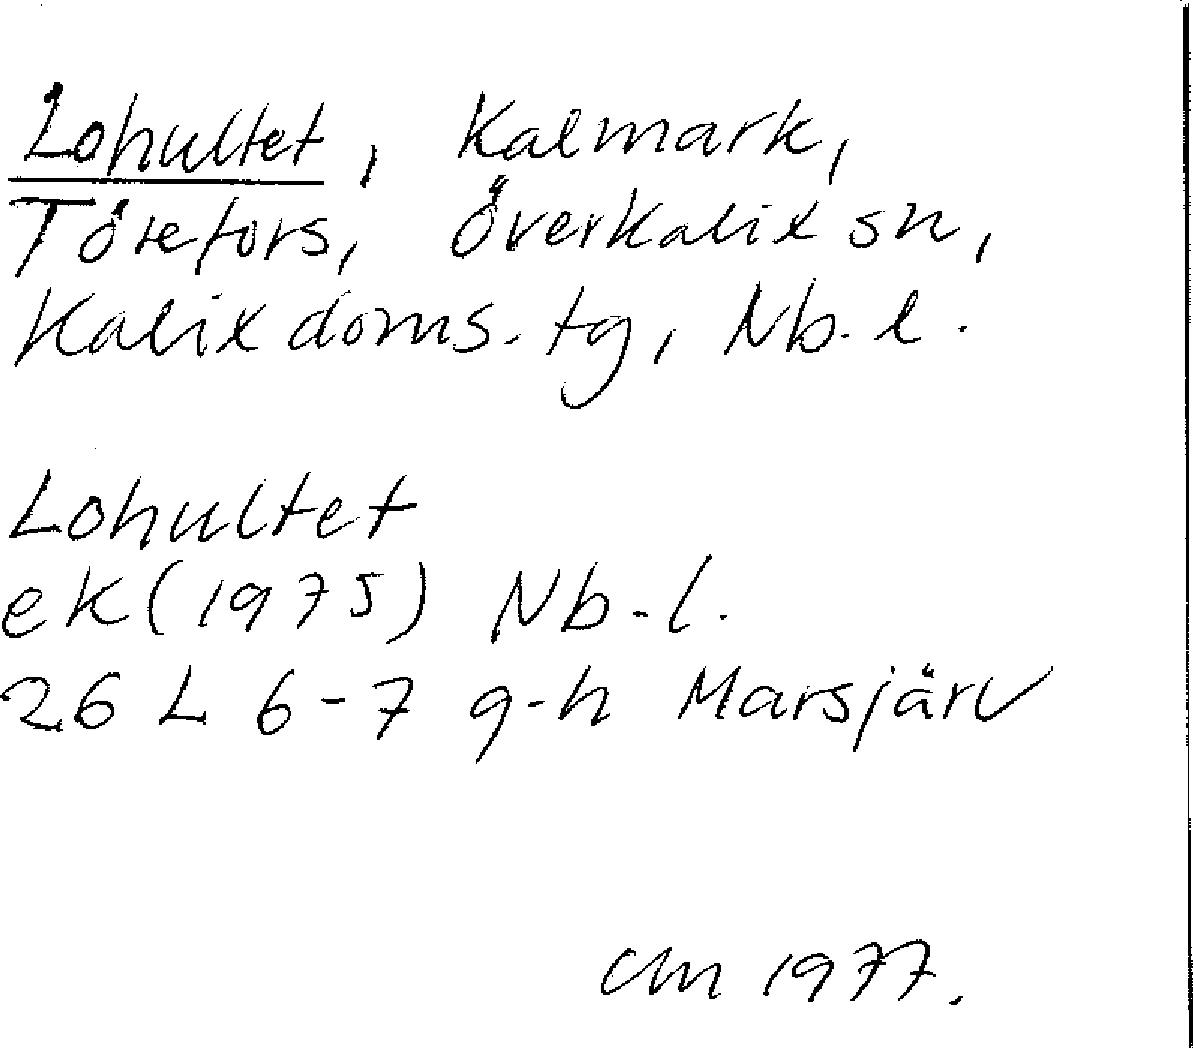 Lohultet, Kalmark,
Törefors, Överkalix sn,
Kalix doms. tg, Nb. l.
Lohultet
ek (1975) Nb. l.
26 L 6-7 g-h Marsjärv
CM 1977.